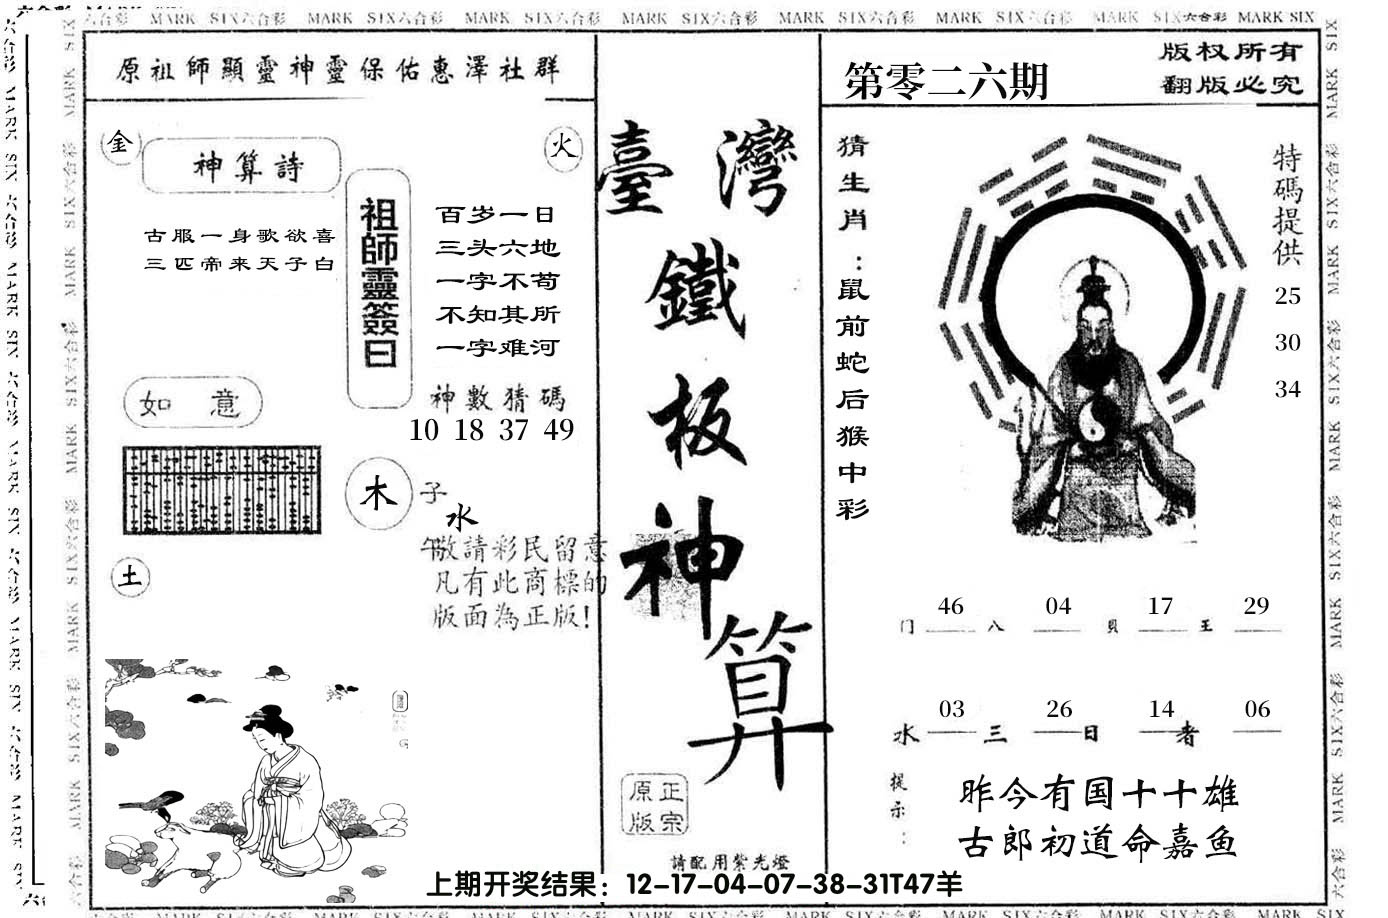 原祖師顯靈神靈保佑惠澤社群
金
神算詩
火
古服一身歌欲喜
三匹帝来天子白
祖師靈簽曰
百岁一日
三头六地
一字不苟
不知其所
一字难河
神數猜碼
10 18 37 49
如意
木
子
水
午
敬請彩民留意
凡有此商標的
版面為正版!
土
臺灣
鐵
板
神
算
正宗
原版
請配用紫光燈
第零二六期
版权所有
翻版必究
猜生肖：鼠前蛇后猴中彩
特碼提供
25
30
34
46 04 17 29
门 八 貝 王
03 26 14 06
水 三 日 者
提示：
昨今有国十十雄
古郎初道命嘉鱼
上期开奖结果：12-17-04-07-38-31T47羊
MARK SIX六合彩